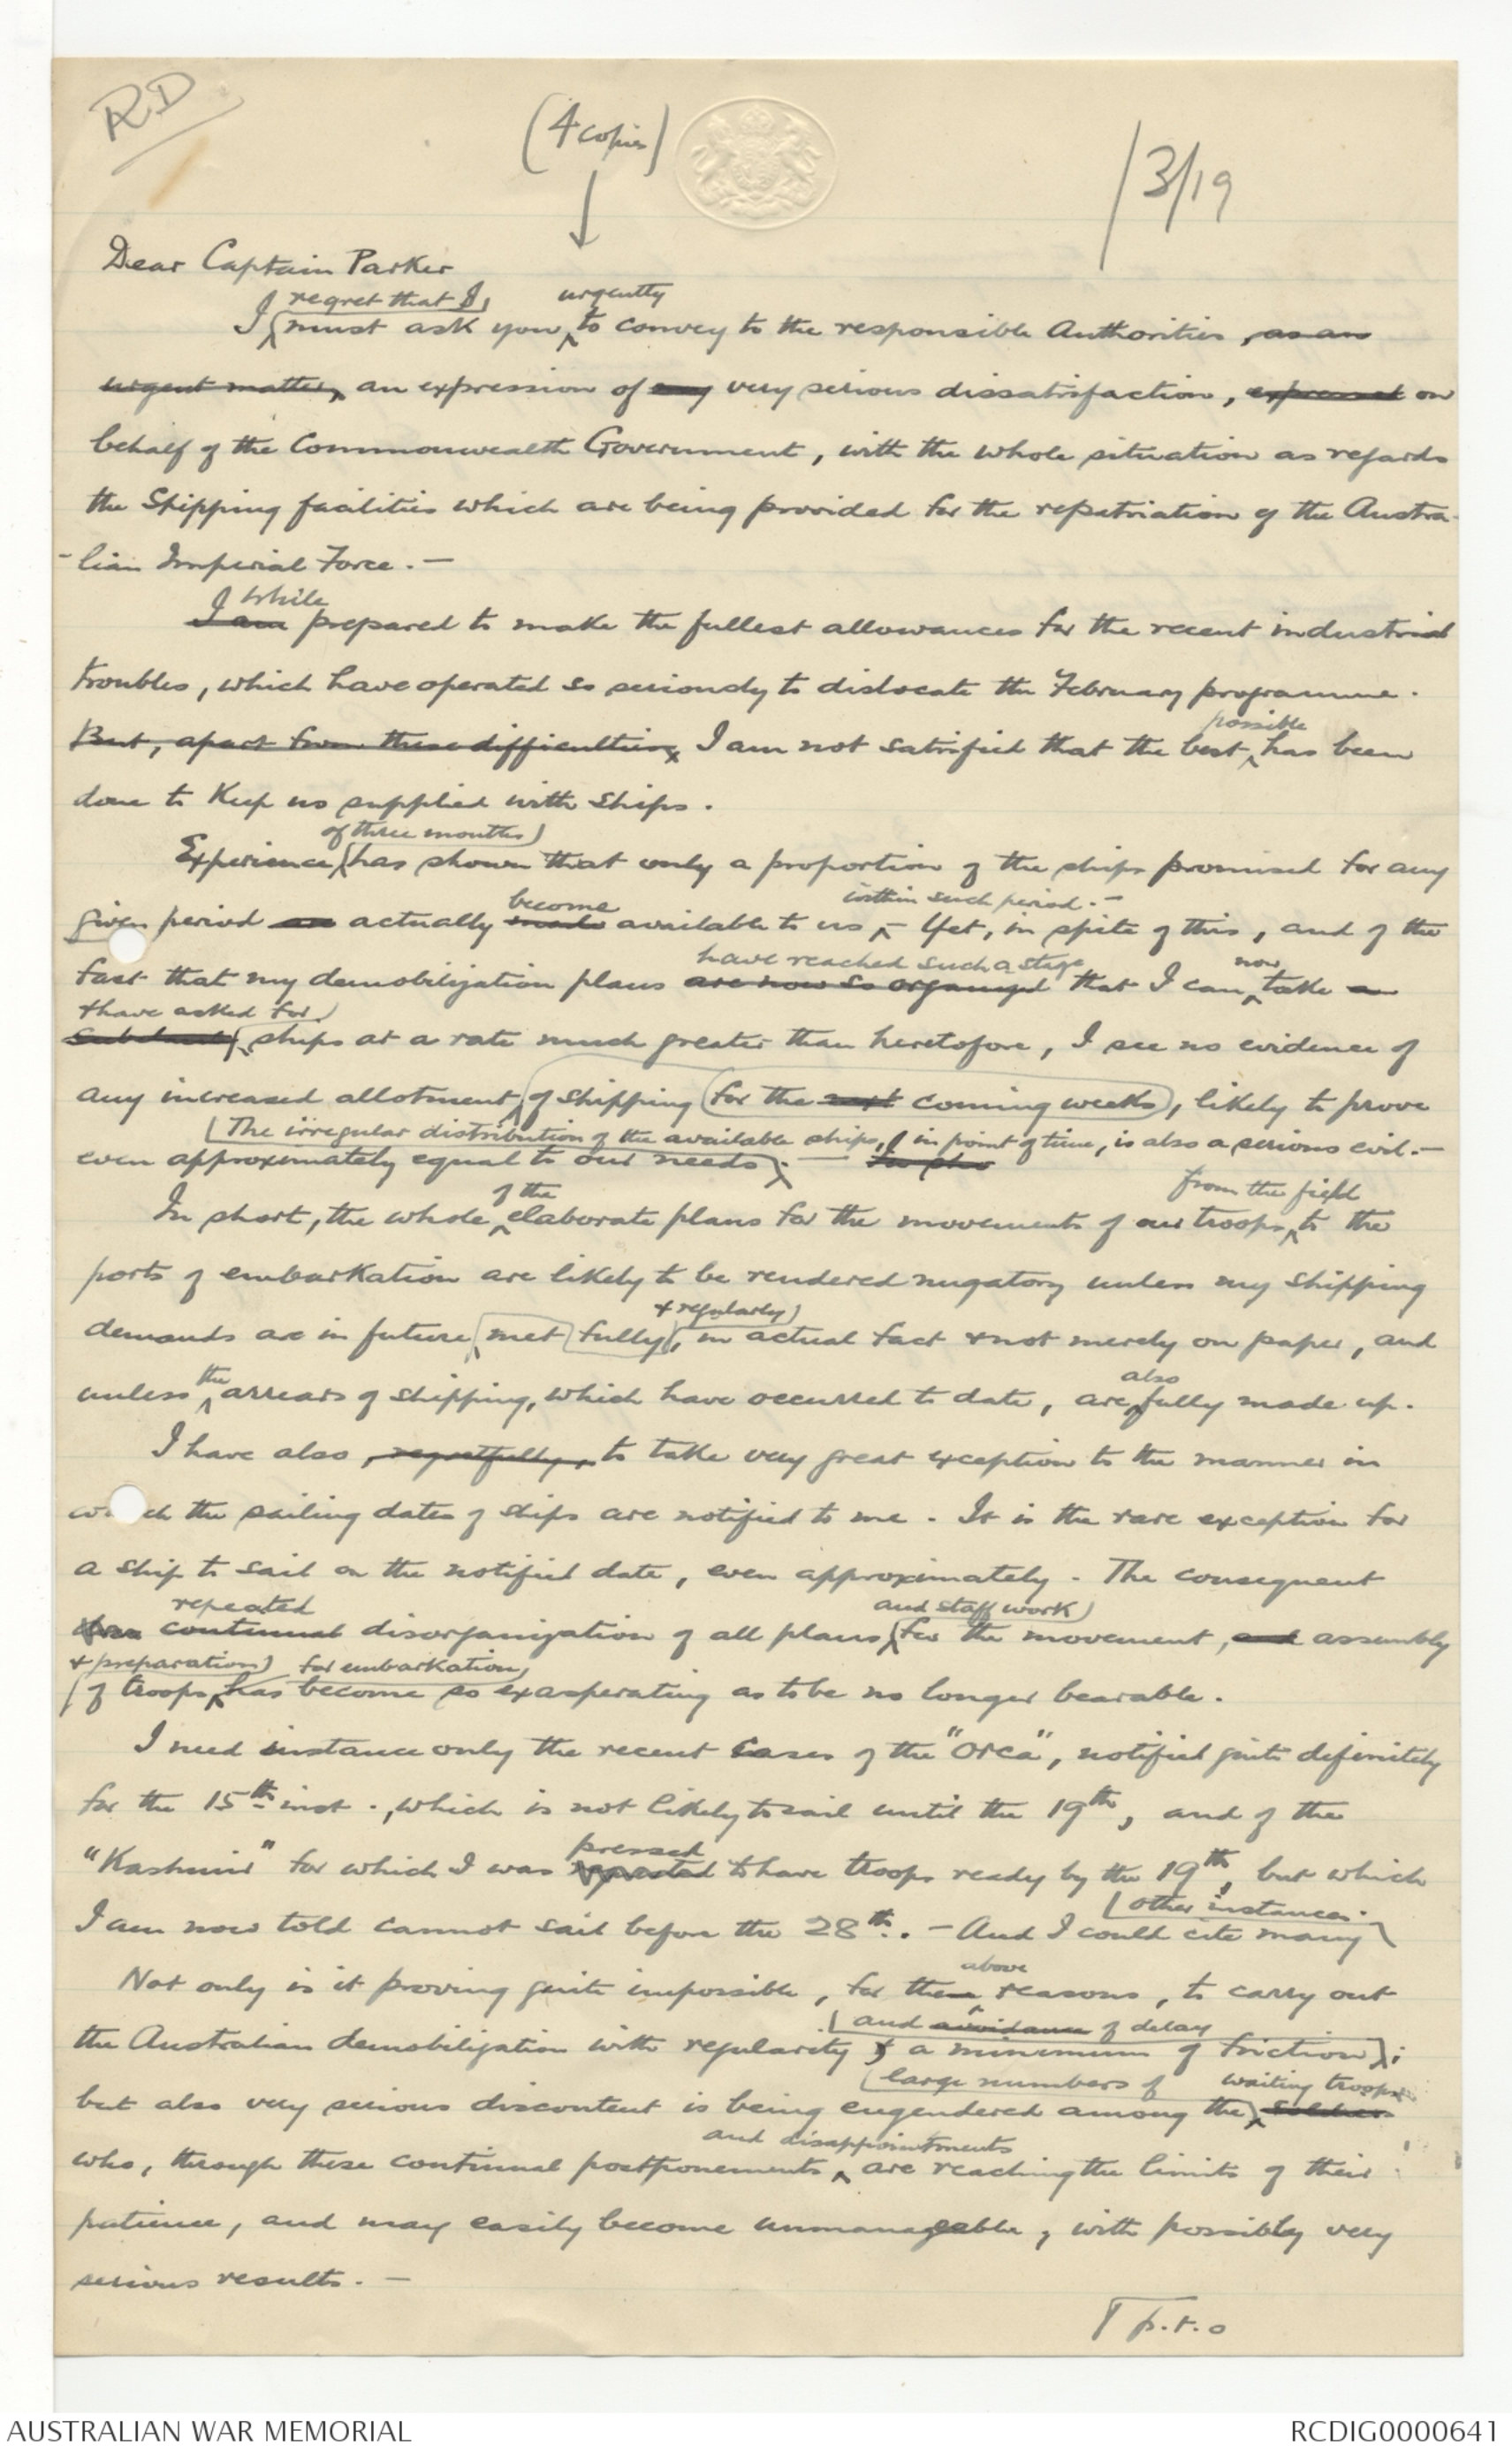 RD
(4 copies)
/3/19
Dear Captain Parker
regret that I urgently
I must ask you to convey to the responsible Authorities, as an
urgent matter, an expression of my very serious dissatisfaction, expressed on
behalf of the Commonwealth Government, with the whole situation as regards
the Shipping facilities which are being provided for the repatriation of the Austra-
-lian Imperial Force. —
While
I am prepared to make the fullest allowances for the recent industrial
troubles, which have operated so seriously to dislocate the February programme.
possible
But, apart from these difficulties, I am not satisfied that the best has been
done to keep us supplied with ships.
of three months
Experience has shown that only a proportion of the ships promised for any
become within such period. —
given period are actually made available to us. Yet, in spite of this, and of the
have reached such a stage now
fact that my demobilization plans are now so organized that I can take a
& have asked for
ships at a rate much greater than heretofore, I see no evidence of
any increased allotment of shipping for the next coming weeks, likely to prove
The irregular distribution of the available ships, in point of time, is also a serious evil. —
even approximately equal to our needs. —
of the from the field
In short, the whole elaborate plans for the movements of our troops to the
ports of embarkation are likely to be rendered nugatory unless my shipping
& regularly
demands are in future met fully, in actual fact & not merely on paper, and
the also
unless arrears of shipping, which have occurred to date, are fully made up.
I have also, regretfully, to take very great exception to the manner in
which the sailing dates of ships are notified to me. It is the rare exception for
a ship to sail on the notified date, even approximately. The consequent
repeated and staff work
continual disorganization of all plans for the movement, and assembly
& preparation for embarkation,
of troops has become so exasperating as to be no longer bearable.
I need instance only the recent cases of the "Orca", notified quite definitely
for the 15th inst., which is not likely to sail until the 19th, and of the
pressed
"Kashmir" for which I was requested to have troops ready by the 19th, but which
other instances.
I am now told cannot sail before the 28th. — And I could cite many
above
Not only is it proving quite impossible, for these reasons, to carry out
and avoidance of delay
the Australian demobilization with regularity & a minimum of friction;
large numbers of waiting troops
but also very serious discontent is being engendered among the soldiers
and disappointments
who, through these continual postponements are reaching the limits of their
patience, and may easily become unmanageable, with possibly very
serious results. —
p.t.o
AUSTRALIAN WAR MEMORIAL
RCDIG0000641